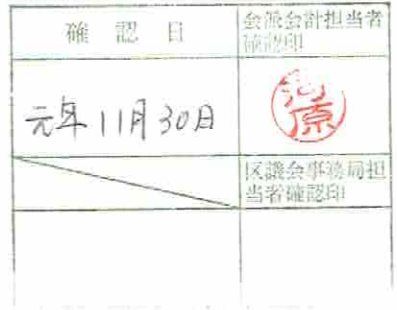 確認日
会派会計担当者
確認印
元年11月30日
区議会事務局担
当者確認印